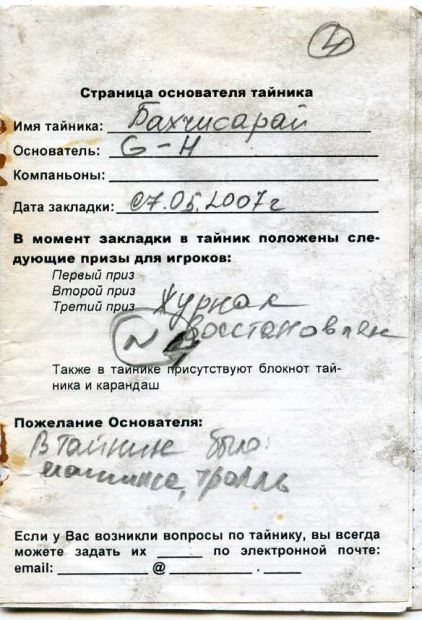 4
Страница основателя тайника
Имя тайника: Бахчисарай
Основатель: G-H
Компаньоны:
Дата закладки: 07.05.2007г
В момент закладки в тайник положены сле-
дующие призы для игроков:
Первый приз
Второй приз
Третий приз Журнал
восстановлен
N
Также в тайнике присутствуют блокнот тай-
ника и карандаш
Пожелание Основателя:
В тайнике было:
машинка, тролль
Если у Вас возникли вопросы по тайнику, вы всегда
можете задать их _____ по электронной почте:
email: __________ @ __________ . ____